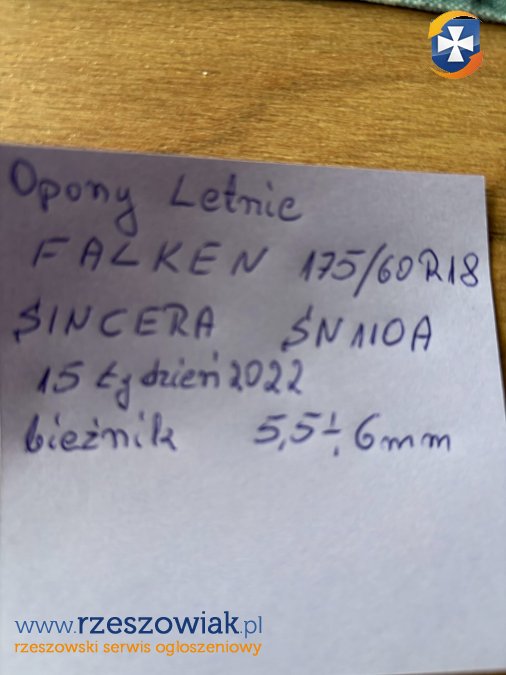 Opony Letnie
FALKEN 175/60R18
SINCERA SN110A
15 tydzień 2022
bieżnik 5,5÷6mm
www.rzeszowiak.pl
rzeszowski serwis ogłoszeniowy